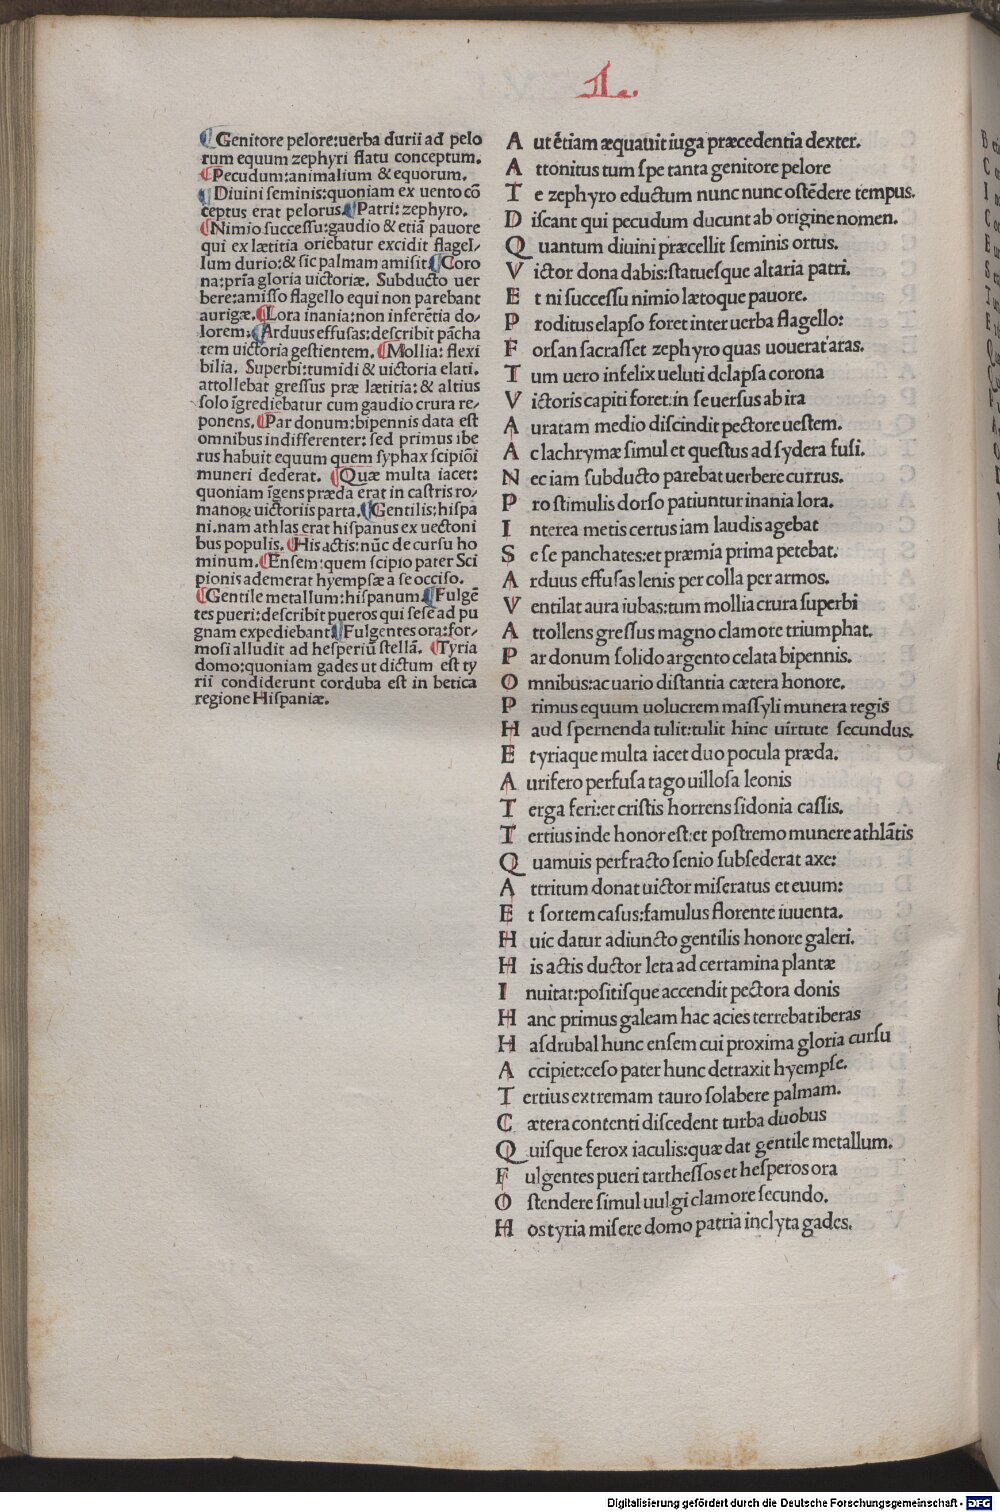 L.
Genitore pelore:uerba durii ad pelo
rum equum zephyri flatu conceptum.
Pecudum:animalium & equorum.
Diuini seminis:quoniam ex uento cō
ceptus erat pelorus. Patri: zephyro.
Nimio successu:gaudio & etiā pauore
qui ex lætitia oriebatur excidit flagel/
lum durio:& sic palmam amisit. Coro
na:pria gloria uictoriæ. Subducto uer
bere:amisso flagello equi non parebant
aurigæ. Lora inania:non inferētia do/
lorem. Arduus effusas:describit pācha
tem uictoria gestientem. Mollia: flexi
bilia. Superbi:tumidi & uictoria elati.
attollebat gressus præ lætitia:& altius
solo īgrediebatur cum gaudio crura re/
ponens. Par donum:bipennis data est
omnibus indifferenter: sed primus ibe
rus habuit equum quem syphax scipiōi
muneri dederat. Quæ multa iacet:
quoniam īgens præda erat in castris ro/
manoꝝ uictoriis parta. Gentilis:hispa
ni.nam athlas erat hispanus ex uectoni
bus populis. His actis:nūc de cursu ho
minum. Ensem:quem scipio pater Sci
pionis ademerat hyempsæ a se occiso.
Gentile metallum:hispanum. Fulgē
tes pueri:describit pueros qui sese ad pu
gnam expediebant. Fulgentes ora:for/
mosi alludit ad hesperiū stellā. Tyria
domo:quoniam gades ut dictum est ty
rii condiderunt corduba est in betica
regione Hispaniæ.
A ut ētiam æquauit iuga præcedentia dexter.
A ttonitus tum spe tanta genitore pelore
T e zephyro eductum nunc nunc ostēdere tempus.
D iscant qui pecudum ducunt ab origine nomen.
Q uantum diuini præcellit seminis ortus.
V ictor dona dabis:statuesque altaria patri.
E t ni successu nimio lætoque pauore.
P roditus elapso foret inter uerba flagello:
F orsan sacrasset zephyro quas uouerat aras.
T um uero infelix ueluti delapsa corona
V ictoris capiti foret:in se uersus ab ira
A uratam medio discindit pectore uestem.
A c lachrymæ simul et questus ad sydera fusi.
N ec iam subducto parebat uerbere currus.
P ro stimulis dorso patiuntur inania lora.
I nterea metis certus iam laudis agebat
S e se panchates:et præmia prima petebat.
A rduus effusas lenis per colla per armos.
V entilat aura iubas:tum mollia crura superbi
A ttollens gressus magno clamore triumphat.
P ar donum solido argento celata bipennis.
O mnibus:ac uario distantia cætera honore.
P rimus equum uolucrem massyli munera regis
H aud spernenda tulit:tulit hinc uirtute secundus.
E tyriaque multa iacet duo pocula præda.
A urifero perfusa tago uillosa leonis
T erga feri:et cristis horrens sidonia cassis.
T ertius inde honor est:et postremo munere athlātis
Q uamuis perfracto senio subsederat axe:
A ttritum donat uictor miseratus et euum:
E t sortem casus:famulus florente iuuenta.
H uic datur adiuncto gentilis honore galeri.
H is actis ductor leta ad certamina plantæ
I nuitat:positisque accendit pectora donis
H anc primus galeam hac acies terrebat iberas
H asdrubal hunc ensem cui proxima gloria cursu
A ccipiet:ceso pater hunc detraxit hyempse.
T ertius extremam tauro solabere palmam.
C ætera contenti discedent turba duobus
Q uisque ferox iaculis:quæ dat gentile metallum.
F ulgentes pueri tarthessos et hesperos ora
O stendere simul uulgi clamore secundo.
H os tyria misere domo patria inclyta gades.
Digitalisierung gefördert durch die Deutsche Forschungsgemeinschaft - DFG